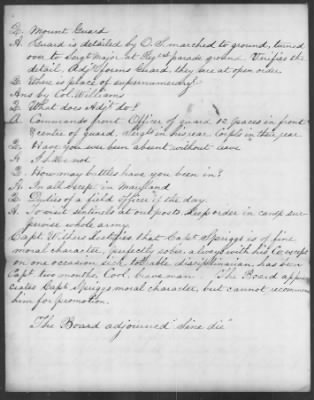 Q. Mount Guard
A. Guard is detailed by O. S. marched to ground, turned
over to Sergt Major at Regtl parade ground. Verifies the
detail, Adjt forms Guard, they are at open order.
Q. Where is place of supernumerary?
Ans by Col. Williams
Q. What does Adjt do?
A. Commands front Officer of guard 12 paces in front
centre of guard, Sergts in his rear Corpls in their rear
Q. Have you ever been absent without leave
A. I have not
Q. How many battles have you been in?
A. In all except in Maryland
Q. Duties of a field officer of the day.
A. To visit sentinels at outposts keep order in camp
whole army.
Capt. Withers testifies that Capt Spriggs is of fine
moral character, perfectly sober always with his Co. except
on one occasion sick disciplinarian, has been
Capt two months, Cool, brave man. The Board appre-
ciates Capt Spriggs moral character, but cannot recommend
him for promotion.
The Board adjourned "Sine die"